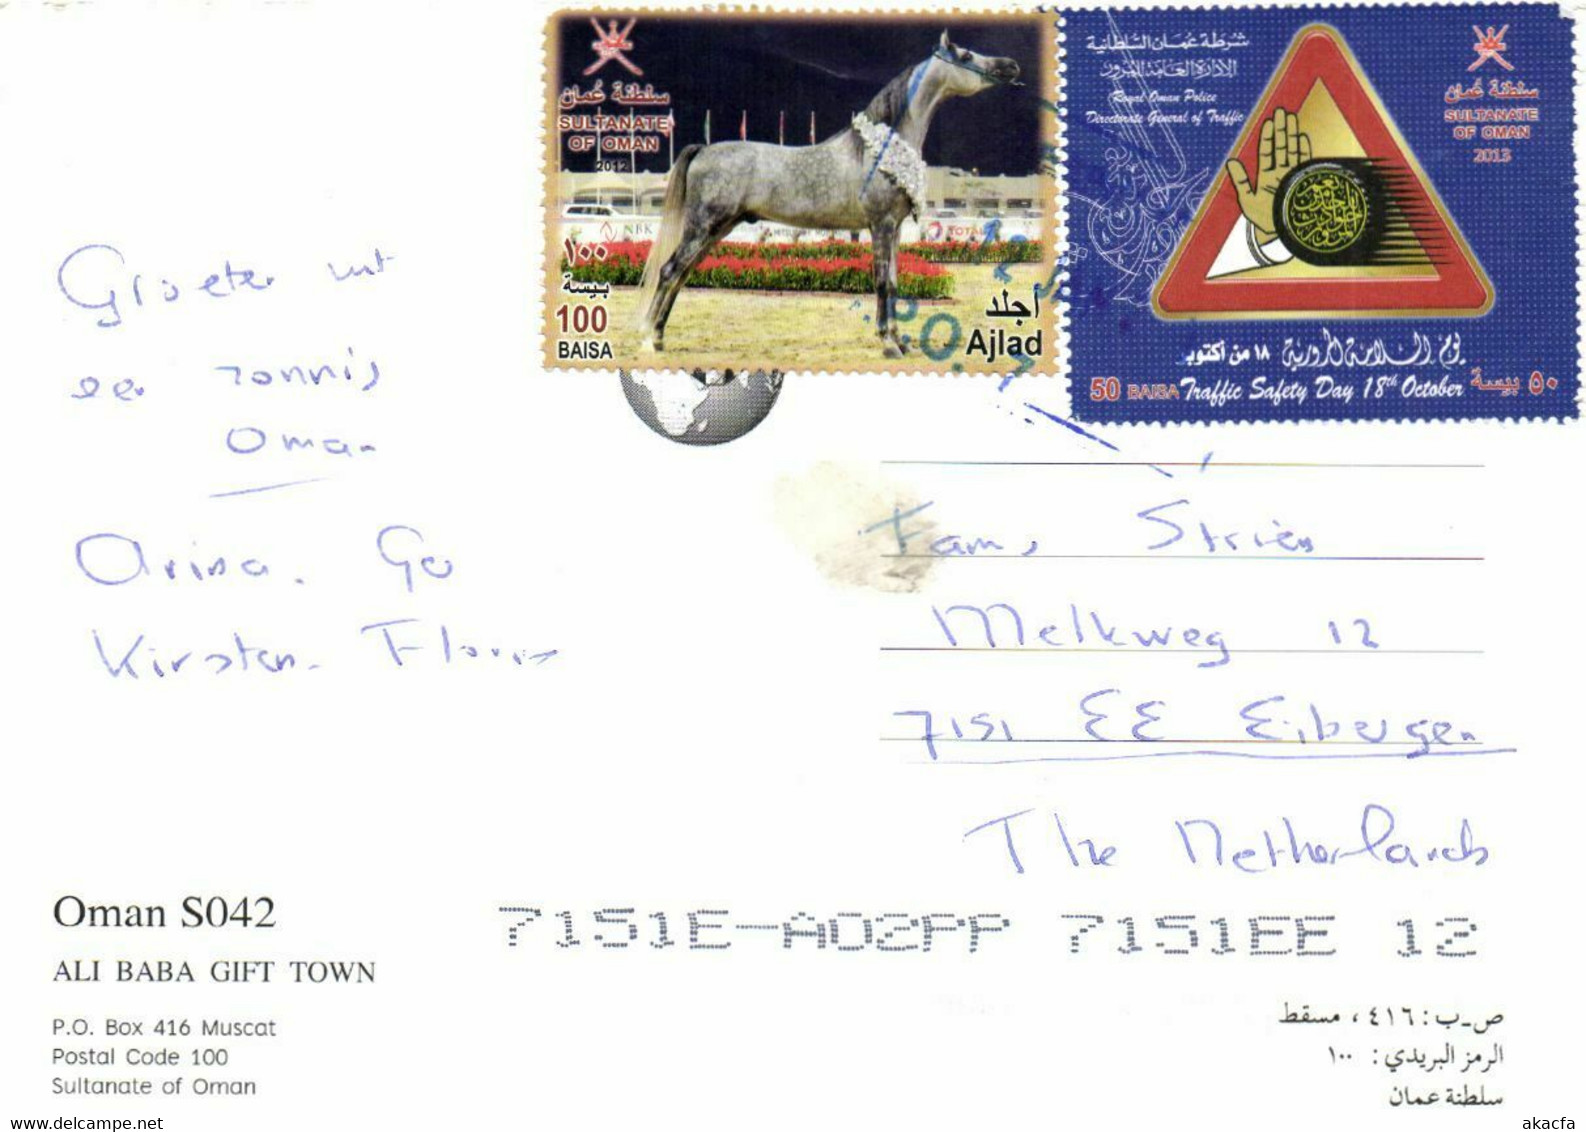 سلطنة عُمان
SULTANATE
OF OMAN
2012
NBK
TOTAL
١٠٠
بيسة
100
BAISA
أجلد
Ajlad
P.O.
شرطة عُمان السلطانية
الإدارة العامة للمرور
Royal Oman Police
Directorate General of Traffic
سلطنة عُمان
SULTANATE
OF OMAN
2013
يوم السلامة المرورية ١٨ من أكتوبر
50 BAISA Traffic Safety Day 18th October ٥٠ بيسة
Groeten uit
een zonnig
Oman
Arina. Go
Kirsten. Floris
Fam. Striens
Melkweg 12
7151 EE Eibergen
The Netherlands
7151E-A02PP 7151EE 12
Oman S042
ALI BABA GIFT TOWN
P.O. Box 416 Muscat
Postal Code 100
Sultanate of Oman
ص-ب: ٤١٦، مسقط
الرمز البريدي: ١٠٠
سلطنة عمان
akacfa
www.delcampe.net
akacfa